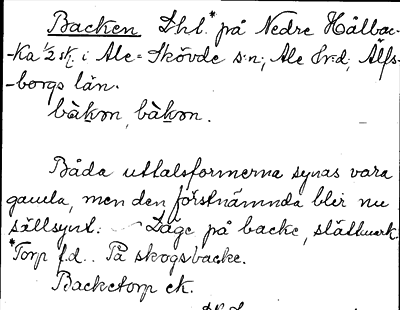 Backen Lhl.* på Nedre Hålbac-
-ka 1/2 sk. i Ale-Skövde s:n; Ale hrd; Älfs-
-borgs län.
bàkən, bàkən.
Båda uttalsformerna synas vara
gamla, men den förstnämnda blir nu
sällsynt. Läge på backe, slättmark.
*Torp f.d.. På skogsbacke.
Backetorp ek.